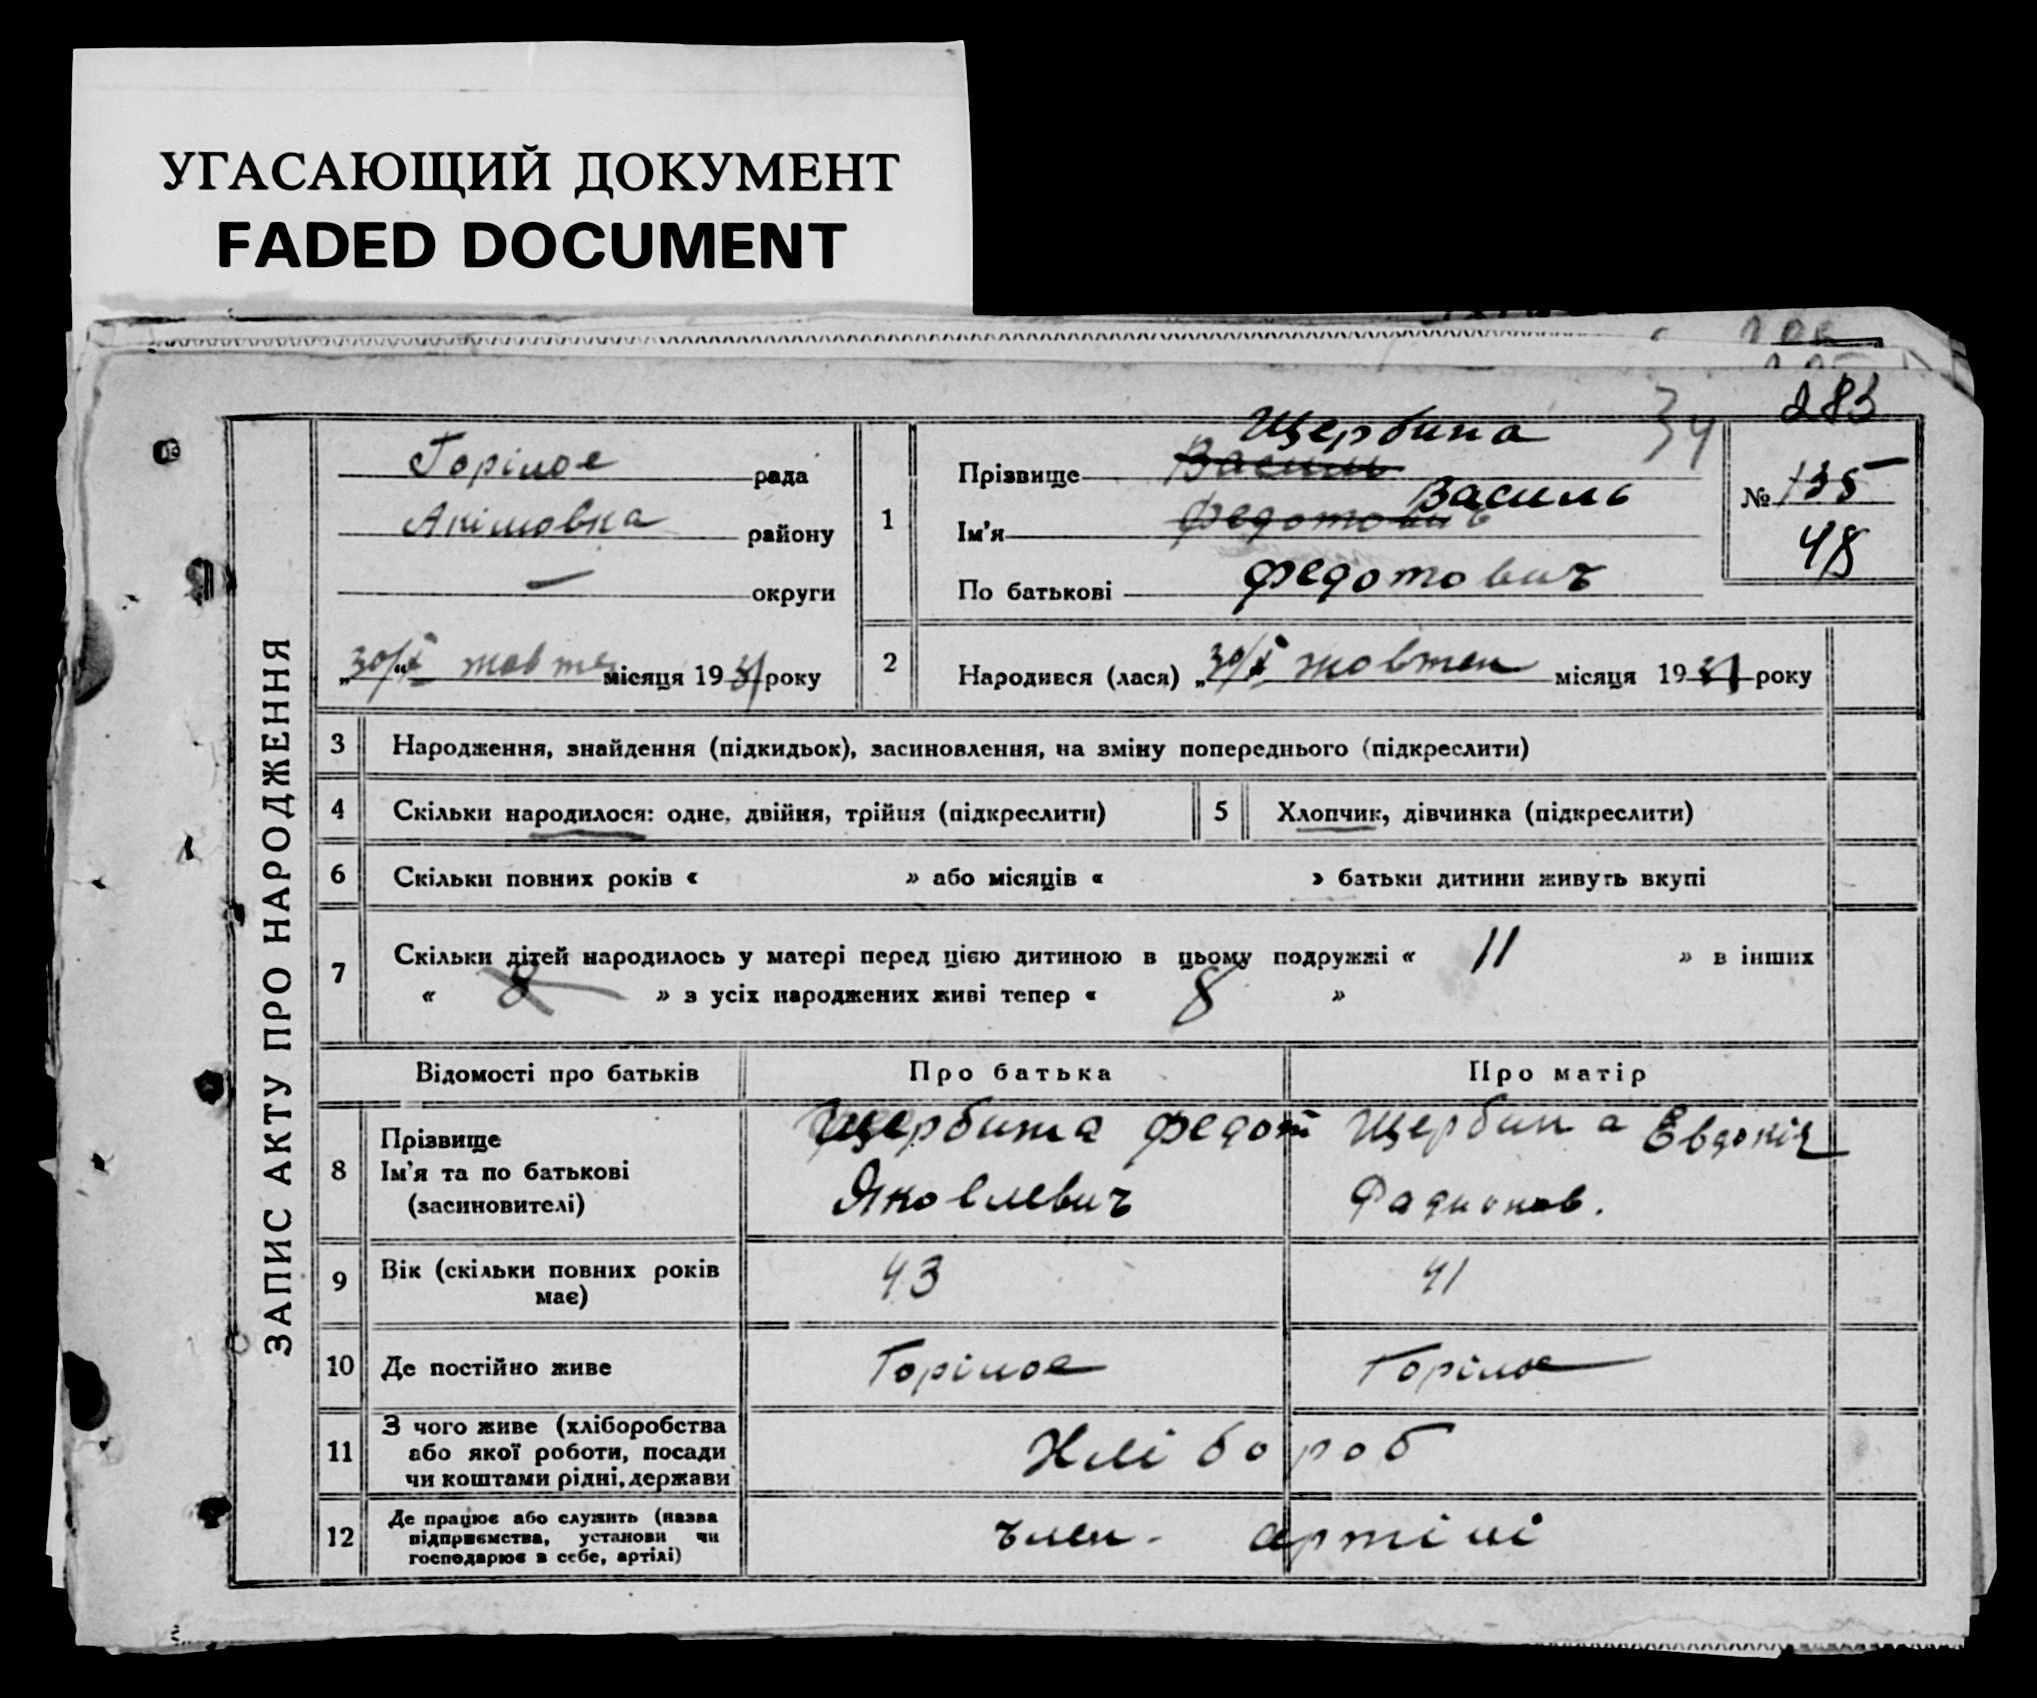 УГАСАЮЩИЙ ДОКУМЕНТ
FADED DOCUMENT
283
34
ЗАПИС АКТУ ПРО НАРОДЖЕННЯ
Горілое рада
Акімовка району
— округи
„30/X“ жовтня місяця 1931 року
1
Щербина
Прізвище Василь
Василь
Ім'я Федотовичь
По батькові Федотович
№ 135
48
2 Народився (лася) „30/X жовтен місяця 1931 року
3 Народження, знайдення (підкидьок), засиновлення, на зміну попереднього (підкреслити)
4 Скільки народилося: одне, двійня, трійня (підкреслити)
5 Хлопчик, дівчинка (підкреслити)
6 Скільки повних років « » або місяців « » батьки дитини живуть вкупі
7 Скільки дітей народилось у матері перед цією дитиною в цьому подружжі « 11 » в інших
« 8 » з усіх народжених живі тепер « 8 »
Відомості про батьків Про батька Про матір
8 Прізвище
Ім'я та по батькові
(засиновителі)
Щербина Федот
Яковлевич
Щербина Евдокія
Фадионов.
9 Вік (скільки повних років
має)
43 41
10 Де постійно живе Горілое Горілое
11 З чого живе (хліборобства
або якої роботи, посади
чи коштами рідні, держави
Хлібороб
12 Де працює або служить (назва
підприємства, установи чи
господарює в себе, артілі)
член. артілі